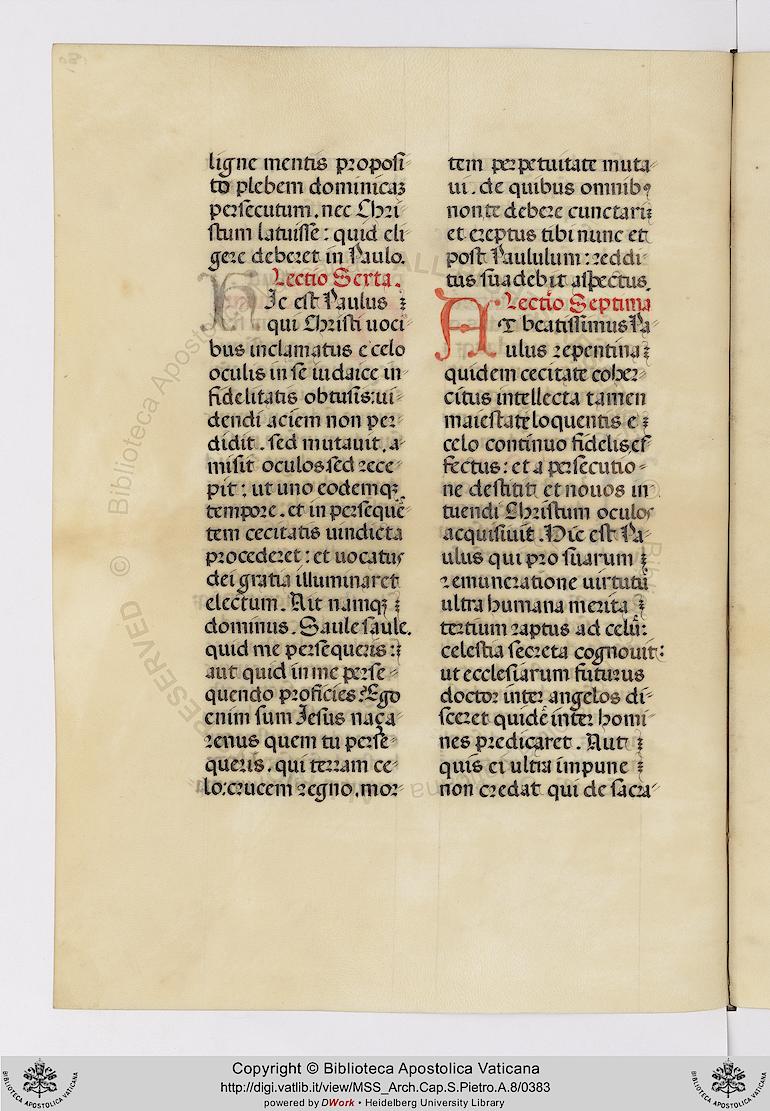 ligne mentis proposi-
to plebem dominicaʒ
persecutum. nec Chri-
stum latuisse: quid eli-
gere deberet in Paulo.
Lectio Sexta.
Hic est Paulus
qui Christi uoci-
bus inclamatus e celo
oculis in se iudaice in-
fidelitatis obtusis: ui-
dendi aciem non per-
didit. sed mutauit. a-
misit oculos sed rece-
pit: ut uno eodemqʒ
tempore. et in persequē-
tem cecitatis uindicta
procederet: et uocatus
dei gratia illuminaret
electum. Ait namqʒ
dominus. Saule saule.
quid me persequeris:
aut quid in me perse-
quendo proficies? Ego
enim sum Jesus naça-
renus quem tu perse-
queris. qui terram ce-
lo: crucem regno. mor-
tem perpetuitate muta-
ui. de quibus omnibꝰ
non te debere cunctari
et ereptus tibi nunc et
post Paululum: reddi-
tus suadebit aspectus.
Lectio Septima
At beatissimus Pa-
ulus repentina
quidem cecitate coher-
citus intellecta tamen
maiestate loquentis e
celo continuo fidelis ef-
fectus: et a persecutio-
ne destitit et nouos in-
tuendi Christum oculos
acquisiuit. Hic est Pa-
ulus qui pro suarum
remuneratione uirtutū
ultra humana merita
tertium raptus ad celū:
celestia secreta cognouit:
ut ecclesiarum futurus
doctor inter angelos di-
sceret quidē inter homi-
nes predicaret. Aut
quis ei ultra impune
non credat qui de sacra-
Copyright © Biblioteca Apostolica Vaticana
http://digi.vatlib.it/view/MSS_Arch.Cap.S.Pietro.A.8/0383
powered by DWork • Heidelberg University Library
BIBLIOTECA APOSTOLICA VATICANA
BIBLIOTECA APOSTOLICA VATICANA